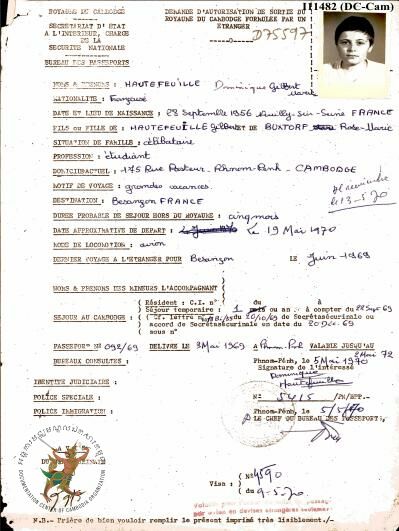 III1482 (DC-Cam)
ROYAUME DU CAMBODGE
SECRETARIAT D'ETAT
A L'INTERIEUR, CHARGE
DE LA
SECURITE NATIONALE
BUREAU DES PASSEPORTS
DEMANDE D'AUTORISATION DE SORTIE DU
ROYAUME DU CAMBODGE FORMULEE PAR UN
ETRANGER
D75597
NOMS & PRENOMS : HAUTEFEUILLE Dominique Gilbert Marie
NATIONALITE : Française
DATE ET LIEU DE NAISSANCE : 28 Septembre 1956 Neuilly-Sur-Seine FRANCE
FILS ou FILLE DE : HAUTEFEUILLE Gilbert ET DE BUXTORF Rose-Marie
SITUATION DE FAMILLE : célibataire
PROFESSION : étudiant
DOMICILE ACTUEL : 175 Rue Pasteur - Phnom-Penh - CAMBODGE
MOTIF DE VOYAGE : grandes vacances
DESTINATION : Besançon FRANCE
DUREE PROBABLE DE SEJOUR HORS DU ROYAUME : cinq mois
DATE APPROXIMATIVE DE DEPART : Le 19 Mai 1970
MODE DE LOCOMOTION : avion
DERNIER VOYAGE A L'ETRANGER POUR Besançon LE Juin 1969
NOMS & PRENOMS DES MINEURS L'ACCOMPAGNANT
SEJOUR AU CAMBODGE :
Résident : C.I. n° du à
Séjour temporaire : 1 ou an à compter du 22 Sept 69
Cf. lettre n° du 20/10/69 de Sécretasécurinale ou
accord de Sécretasécurinale en date du 20 Oct. 69
sous n°
PASSEPORT N° 092/69 DELIVRE LE 3 Mai 1969 A Phnom-Penh VALABLE JUSQU'AU
2 Mai 72
BUREAUX CONSULTES : Phnom-Pénh, le 5 Mai 1970
Signature de l'intéressé
Dominique
Hautefeuille
IDENTITE JUDICIAIRE :
POLICE SPECIALE : N° 5415 /PN/EPP.-
POLICE IMMIGRATION : Phnom-Pénh, le 5/5/70
LE CHEF DU BUREAU DES PASSEPORTS,
DOCUMENTATION CENTER OF CAMBODIA ORGANIZATION
Visa : N° 4590
du 9-5-70.
N.B.- Prière de bien vouloir remplir le présent imprimé très lisiblement./-